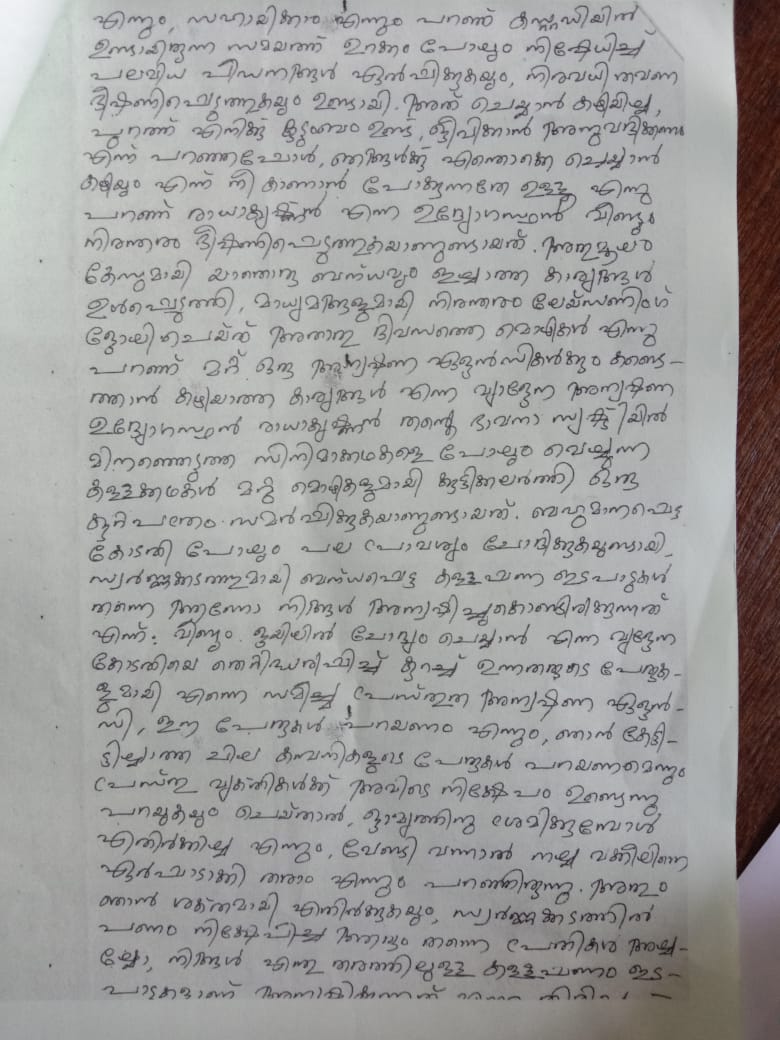 എന്നും, സഹായിക്കാം എന്നും പറഞ്ഞ് കസ്റ്റഡിയിൽ
ഉണ്ടായിരുന്ന സമയത്ത് ഉറക്കം പോലും നിഷേധിച്ച്
പലവിധ പീഡനങ്ങൾ ഏൽപ്പിക്കുകയും, നിരവധി തവണ
ഭീഷണിപ്പെടുത്തുകയും ഉണ്ടായി. അത് ചെയ്യാൻ കഴിയില്ല,
പുറത്ത് എനിക്ക് കുടുംബം ഉണ്ട്, ജീവിക്കാൻ അനുവദിക്കണം
എന്ന് പറഞ്ഞപ്പോൾ, ഞങ്ങൾക്ക് എന്തൊക്കെ ചെയ്യാൻ
കഴിയും എന്ന് നീ കാണാൻ പോകുന്നതേ ഉള്ളൂ എന്നു
പറഞ്ഞ് രാധാകൃഷ്ണൻ എന്ന ഉദ്യോഗസ്ഥൻ വീണ്ടും
നിരന്തരം ഭീഷണിപ്പെടുത്തുകയാണുണ്ടായത്. അതുമൂലം
കേസുമായി യാതൊരു ബന്ധവും ഇല്ലാത്ത കാര്യങ്ങൾ
ഉൾപ്പെടുത്തി, മാധ്യമങ്ങളുമായി നിരന്തരം ലേയ്സണിംഗ്
ജോലി ചെയ്ത് അതാതു ദിവസത്തെ മൊഴികൾ എന്നു
പറഞ്ഞ് മറ്റ് ഒരു അന്വേഷണ ഏജൻസികൾക്കും കണ്ടെ-
ത്താൻ കഴിയാത്ത കാര്യങ്ങൾ എന്ന വ്യാജേന അന്വേഷണ
ഉദ്യോഗസ്ഥൻ രാധാകൃഷ്ണൻ തന്റെ ഭാവനാ സൃഷ്ടിയിൽ
മിനഞ്ഞെടുത്ത സിനിമാക്കഥകളെ പോലും വെല്ലുന്ന
കള്ളക്കഥകൾ മറ്റു മൊഴികളുമായി കൂട്ടിക്കലർത്തി ഒരു
കുറ്റപത്രം സമർപ്പിക്കുകയാണുണ്ടായത്. ബഹുമാനപ്പെട്ട
കോടതി പോലും പല പ്രാവശ്യം ചോദിക്കുകയുണ്ടായി,
സ്വർണ്ണക്കടത്തുമായി ബന്ധപ്പെട്ട കള്ളപ്പണ ഇടപാടുകൾ
തന്നെ ആണോ നിങ്ങൾ അന്വേഷിച്ചുകൊണ്ടിരിക്കുന്നത്
എന്ന്. വീണ്ടും ജയിലിൽ ചോദ്യം ചെയ്യാൻ എന്ന വ്യാജേന
കോടതിയെ തെറ്റിദ്ധരിപ്പിച്ച് കുറച്ച് ഉന്നതരുടെ പേരുക-
ളുമായി എന്നെ സമീപിച്ച പ്രസ്തുത അന്വേഷണ ഏജൻ-
സി, ഈ പേരുകൾ പറയണം എന്നും, ഞാൻ കേട്ടി-
ട്ടില്ലാത്ത ചില കമ്പനികളുടെ പേരുകൾ പറയണമെന്നും
പ്രസ്തുത വ്യക്തികൾക്ക് അവിടെ നിക്ഷേപം ഉണ്ടെന്നു
പറയുകയും ചെയ്താൽ, ജാമ്യത്തിനു ശ്രമിക്കുമ്പോൾ
എതിർക്കില്ല എന്നും, വേണ്ടി വന്നാൽ നല്ല വക്കീലിനെ
ഏർപ്പാടാക്കി തരാം എന്നും പറഞ്ഞിരുന്നു. അതും
ഞാൻ ശക്തമായി എതിർക്കുകയും, സ്വർണ്ണക്കടത്തിൽ
പണം നിക്ഷേപിച്ച ആദ്യം തന്നെ പ്രതികൾ അല്ല-
ല്ലോ, നിങ്ങൾ എന്തു തരത്തിലുള്ള കള്ളപ്പണം ഇട-
പാടുകളാണ് അന്വേഷിക്കുന്നത്